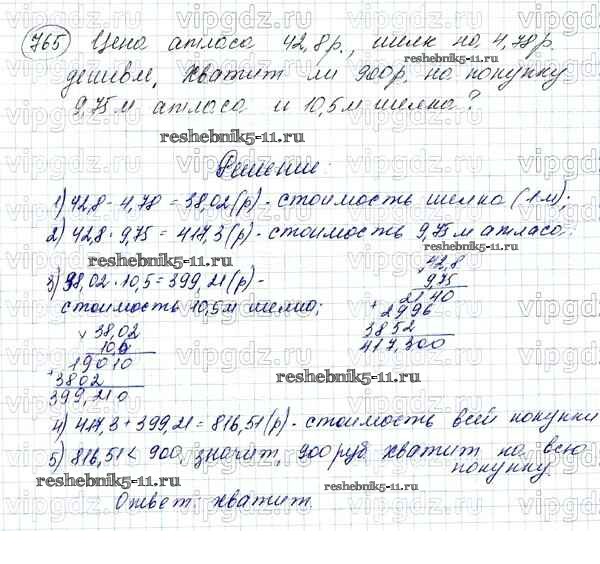 765 Цена атласа 42,8р., шелк на 4,78р.
дешевле, хватит ли 900р. на покупку
9,75м атласа и 10,5м шелка?
reshebnik5-11.ru
reshebnik5-11.ru
Решение:
1) 42,8 - 4,78 = 38,02(р) - стоимость шелка (1м);
2) 42,8 · 9,75 = 417,3(р) - стоимость 9,75м атласа;
reshebnik5-11.ru
3) 38,02 · 10,5 = 399,21(р) -
стоимость 10,5м шелка;
reshebnik5-11.ru
42,8
9,75
2140
+ 2996
3852
417,300
× 38,02
10,5
19010
+ 3802
399,210
reshebnik5-11.ru
4) 417,3 + 399,21 = 816,51(р) - стоимость всей покупки
5) 816,51 < 900, значит, 900руб хватит на всю
покупку.
reshebnik5-11.ru
reshebnik5-11.ru
Ответ: хватит.
vipgdz.ru